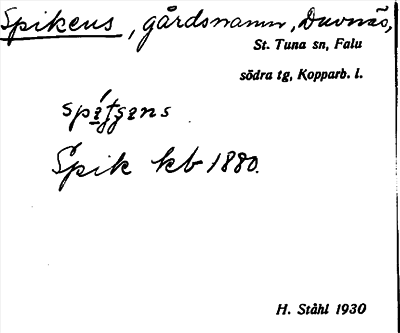 Spikens, gårdsnamn, Duvnäs,
St. Tuna sn, Falu
södra tg, Kopparb. l.
Spik kb 1880.
H. Ståhl 1930